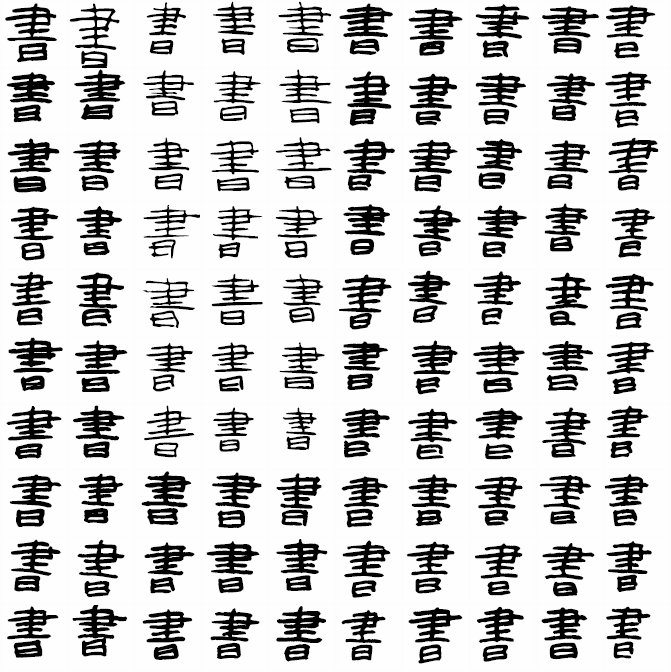 書書書書書書書書書書
書書書書書書書書書書
書書書書書書書書書書
書書書書書書書書書書
書書書書書書書書書書
書書書書書書書書書書
書書書書書書書書書書
書書書書書書書書書書
書書書書書書書書書書
書書書書書書書書書書